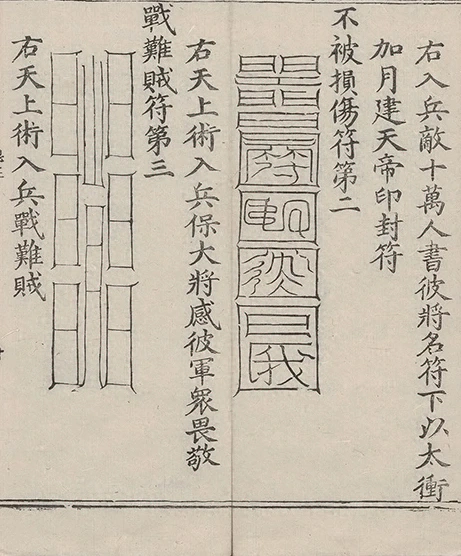 右入兵敵十萬人書彼將名符下以太衝
加月建天帝印封符
不被損傷符第二
右天上術入兵保大將感彼軍眾畏敬
戰難賊符第三
右天上術入兵戰難賊